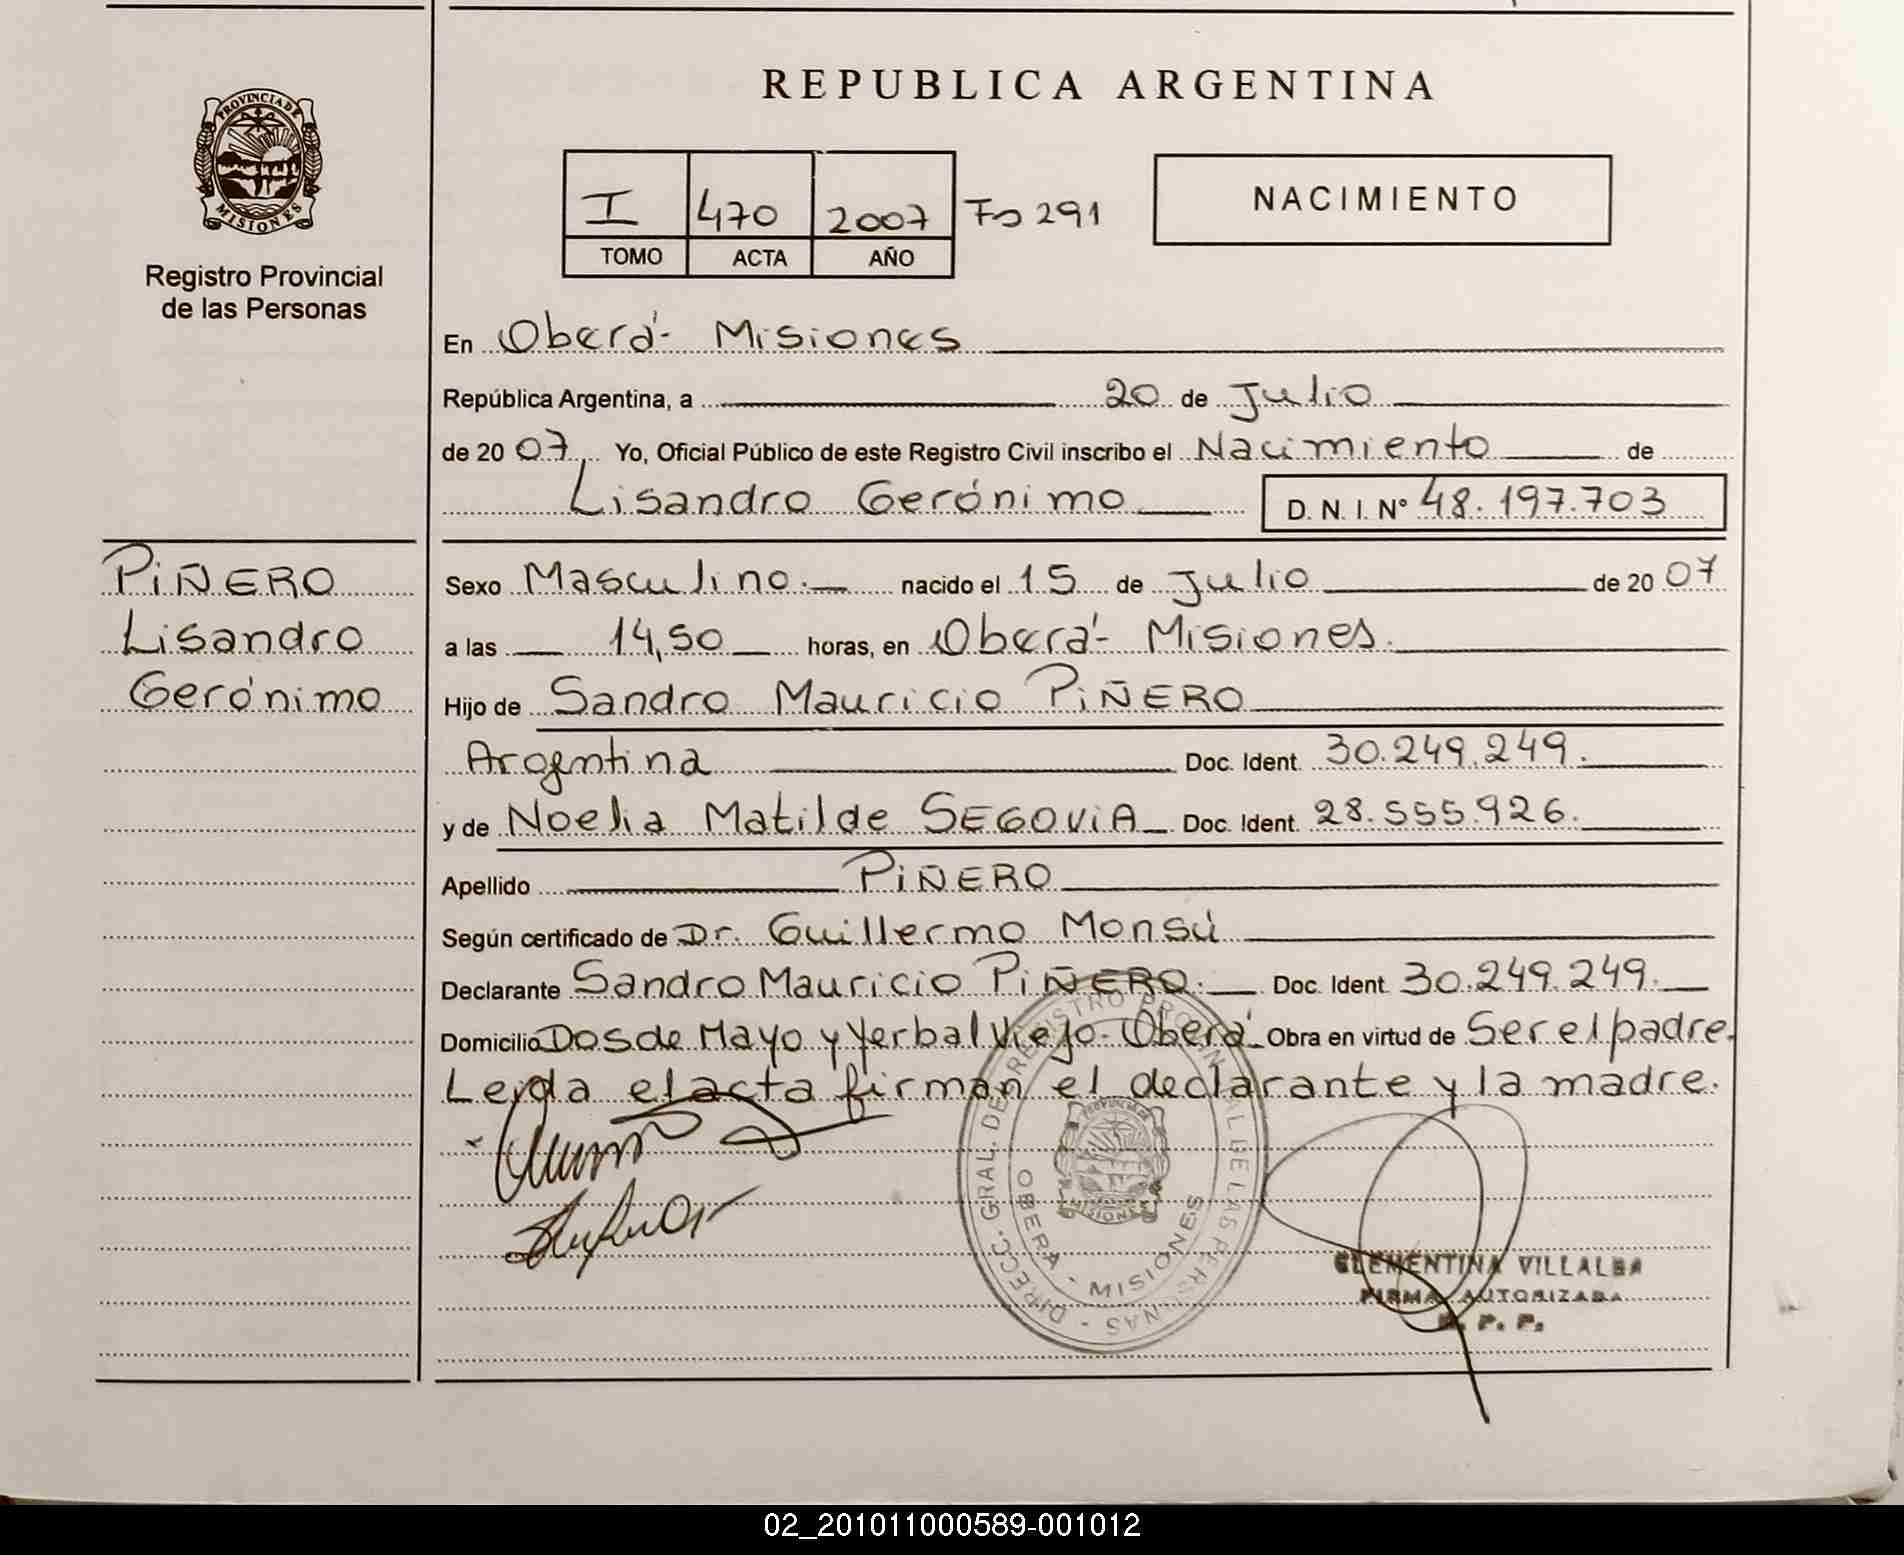 REPUBLICA ARGENTINA
PROVINCIA DE
MISIONES
Registro Provincial
de las Personas
I 470 2007 Fs 291
TOMO ACTA AÑO
NACIMIENTO
En Oberá - Misiones
República Argentina, a 20 de Julio
de 20 07 Yo, Oficial Público de este Registro Civil inscribo el Nacimiento de
Lisandro Gerónimo D. N. I. Nº 48.197.703
PIÑERO
Lisandro
Gerónimo
Sexo Masculino.- nacido el 15 de Julio de 20 07
a las 14,50 horas, en Oberá - Misiones.
Hijo de Sandro Mauricio PIÑERO
Argentina Doc. Ident. 30.249.249.
y de Noelia Matilde SEGOVIA Doc. Ident. 28.555.926.
Apellido PIÑERO
Según certificado de Dr. Guillermo Monsú
Declarante Sandro Mauricio PIÑERO. Doc. Ident. 30.249.249.
Domicilio Dos de Mayo y Yerbal Viejo - Oberá Obra en virtud de Ser el padre.
Leida el acta firman el declarante y la madre.
DIRECC. GRAL. DE REGISTRO PROVINCIAL DE LAS PERSONAS
OBERA - MISIONES
PROVINCIA DE
MISIONES
CLEMENTINA VILLALBA
FIRMA AUTORIZADA
R. P. P.
02_201011000589-001012